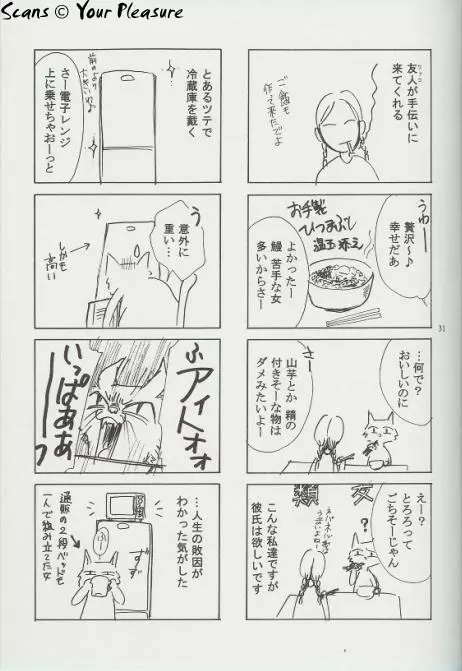 Scans © Your Pleasure
友人が手伝いに
来てくれる
ご飯も
作って来たでよ
うわー
贅沢〜♪
幸せだあ
お手製
ひつまぶし
温玉添え
よかったー
鰻 苦手な女
多いからさー
…何で?
おいしいのに
さー
山芋とか 精の
付きそーな物は
ダメみたいよー
えー?
とろろって
ごちそーじゃん
?
こんな私達ですが
彼氏は欲しいです
31
とあるツテで
冷蔵庫を戴く
前のより
大きいわ♪
さー電子レンジ
上に乗せちゃおーっと
うっ
意外に
重い…
しかも
高い
ふアイトオォ
いっぱああーつ
…人生の敗因が
わかった気がした
ずず
通販の2段ベッドも
一人で組み立てた女